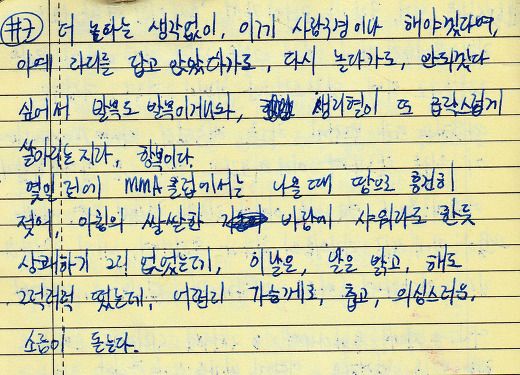 #7 더 놀라는 생각없이, 이제 사람구경이나 해야겠다며,
아예 다리를 담고 앉았다가도, 다시 논다가도, 안되겠다
싶어서 발목도 발목이거니와, 생리혈이 또 급작스럽게
쏟아지는지라, 항복이다.
몇일 전에 MMA 클럽에서는 나올때 땀으로 흥건히
젖어, 아침의 쌀쌀한 바람에 샤워라도 한듯
상쾌하기 그지 없었는데, 이날은, 날은 밝고, 해도
그럭저럭 떴는데, 어련히 가슴께로, 춥고, 의심스러운,
소름이 돋는다.